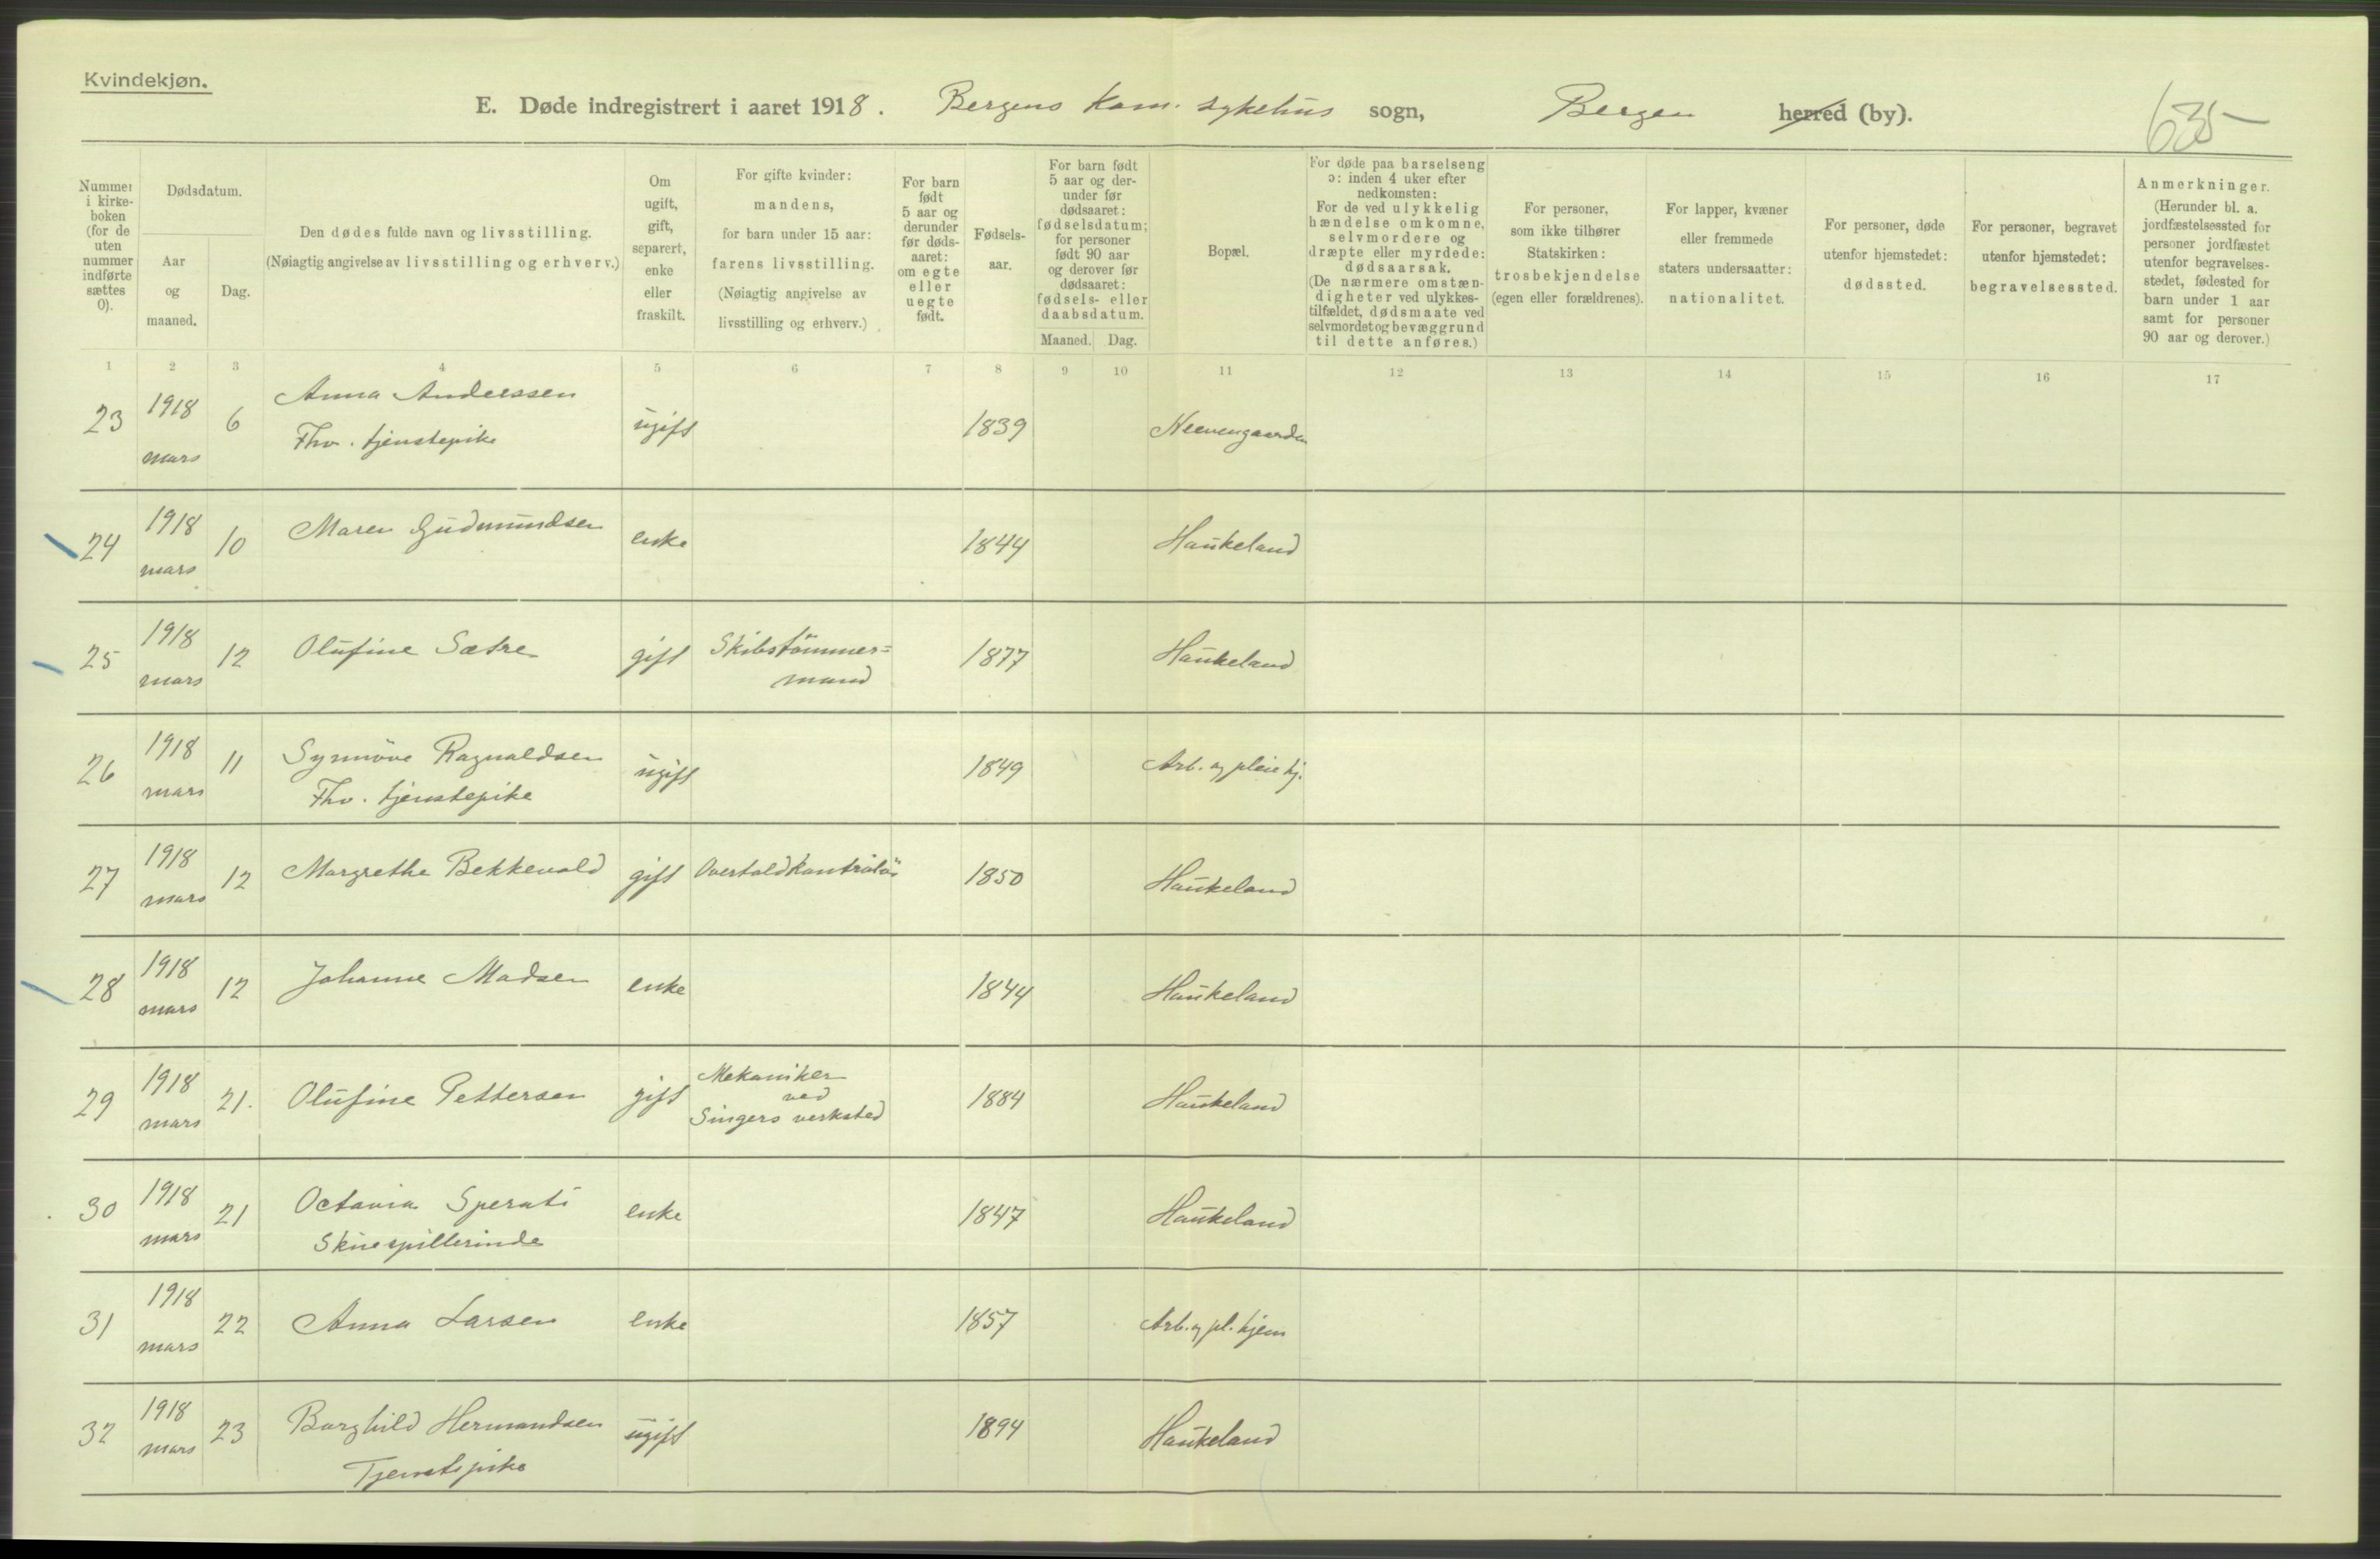 Kvindekjøn.
E. Døde indregistrert i aaret 1918. Bergens kom. sykehus sogn, Bergen herred (by).
635
Nummer i kirkeboken (for de uten nummer indførte sættes 0).
Dødsdatum.
Aar og maaned.
Dag.
Den dødes fulde navn og livsstilling.
(Nøiagtig angivelse av livsstilling og erhverv.)
Om ugift, gift, separert, enke eller fraskilt.
For gifte kvinder: mandens, for barn under 15 aar: farens livsstilling. (Nøiagtig angivelse av livsstilling og erhverv.)
For barn født 5 aar og derunder før dødsaaret: om egte eller uegte født.
Fødselsaar.
For barn født 5 aar og derunder før dødsaaret: fødselsdatum; for personer født 90 aar og derover før dødsaaret: fødsels- eller daabsdatum.
Maaned. Dag.
Bopæl.
For døde paa barselseng ɔ: inden 4 uker efter nedkomsten: For de ved ulykkelig hændelse omkomne, selvmordere og dræpte eller myrdede: dødsaarsak. (De nærmere omstændigheter ved ulykkestilfældet, dødsmaate ved selvmordet og bevæggrund til dette anføres.)
For personer, som ikke tilhører Statskirken: trosbekjendelse (egen eller forældrenes).
For lapper, kvæner eller fremmede staters undersaatter: nationalitet.
For personer, døde utenfor hjemstedet: dødssted.
For personer, begravet utenfor hjemstedet: begravelsessted.
Anmerkninger. (Herunder bl. a. jordfæstelsessted for personer jordfæstet utenfor begravelsesstedet, fødested for barn under 1 aar samt for personer 90 aar og derover.)
1 2 3 4 5 6 7 8 9 10 11 12 13 14 15 16 17
23 1918 mars 6 Anna Anderssen ugift 1839 Neevengaarden
Fhv. tjenstepike
24 1918 mars 10 Maren Gudmundsen enke 1844 Haukeland
25 1918 mars 12 Olufine Sætre gift Skibstømmer=
mand 1877 Haukeland
26 1918 mars 11 Synnöve Ragnaldsen ugift 1849 Arb. og pleiehj.
Fhv. tjenstepike
27 1918 mars 12 Margrethe Bekkevold gift Overtoldkontrolör 1850 Haukeland
28 1918 mars 12 Johanne Madsen enke 1844 Haukeland
29 1918 mars 21. Olufine Pettersen gift Mekaniker
ved
Singers verksted 1884 Haukeland
30 1918 mars 21 Octavia Sperati enke 1847 Haukeland
Skuespillerinde
31 1918 mars 22 Anna Larsen enke 1857 Arb. og pl. hjem
32 1918 mars 23 Borghild Hermandsen ugift 1894 Haukeland
Tjenstepike